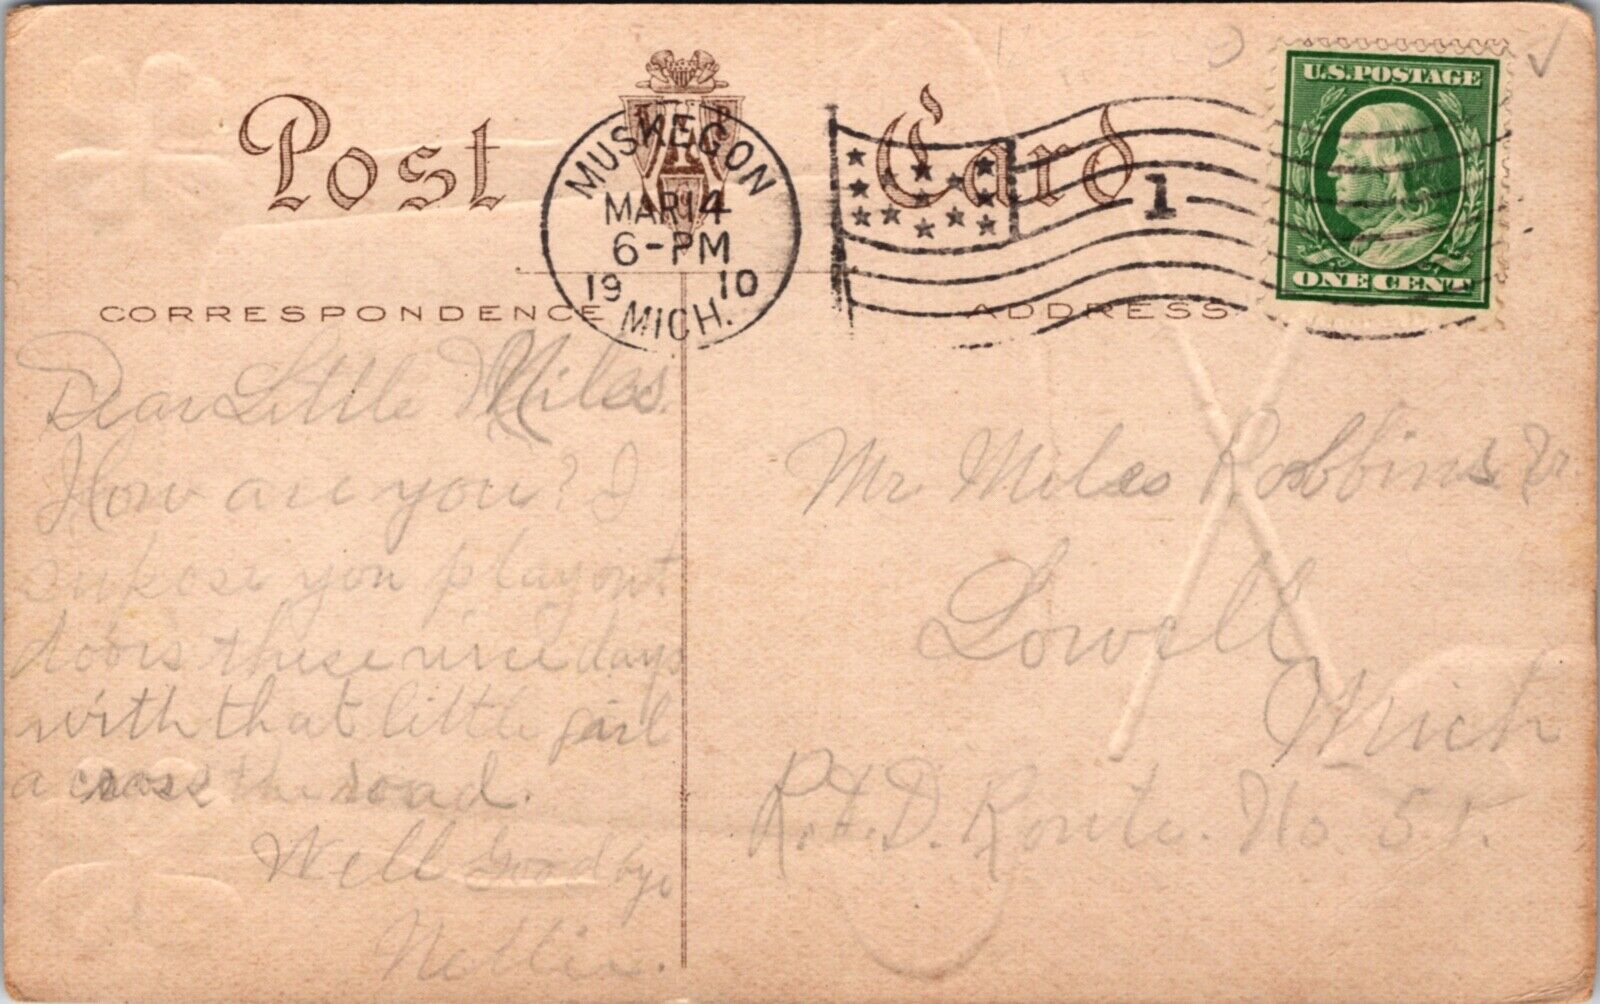 Post Card
U.S. POSTAGE
ONE CENT
MUSKEGON
MAR 14
6-PM
1910
MICH.
1
CORRESPONDENCE
ADDRESS
Dear Little Miles.
How are you? I
supose you play out
doors these nice days
with that little girl
across the road.
Well Good bye,
Nettie.
Mr Miles Robbins Jr.
Lowell
Mich
R.F.D. Route. No 51.